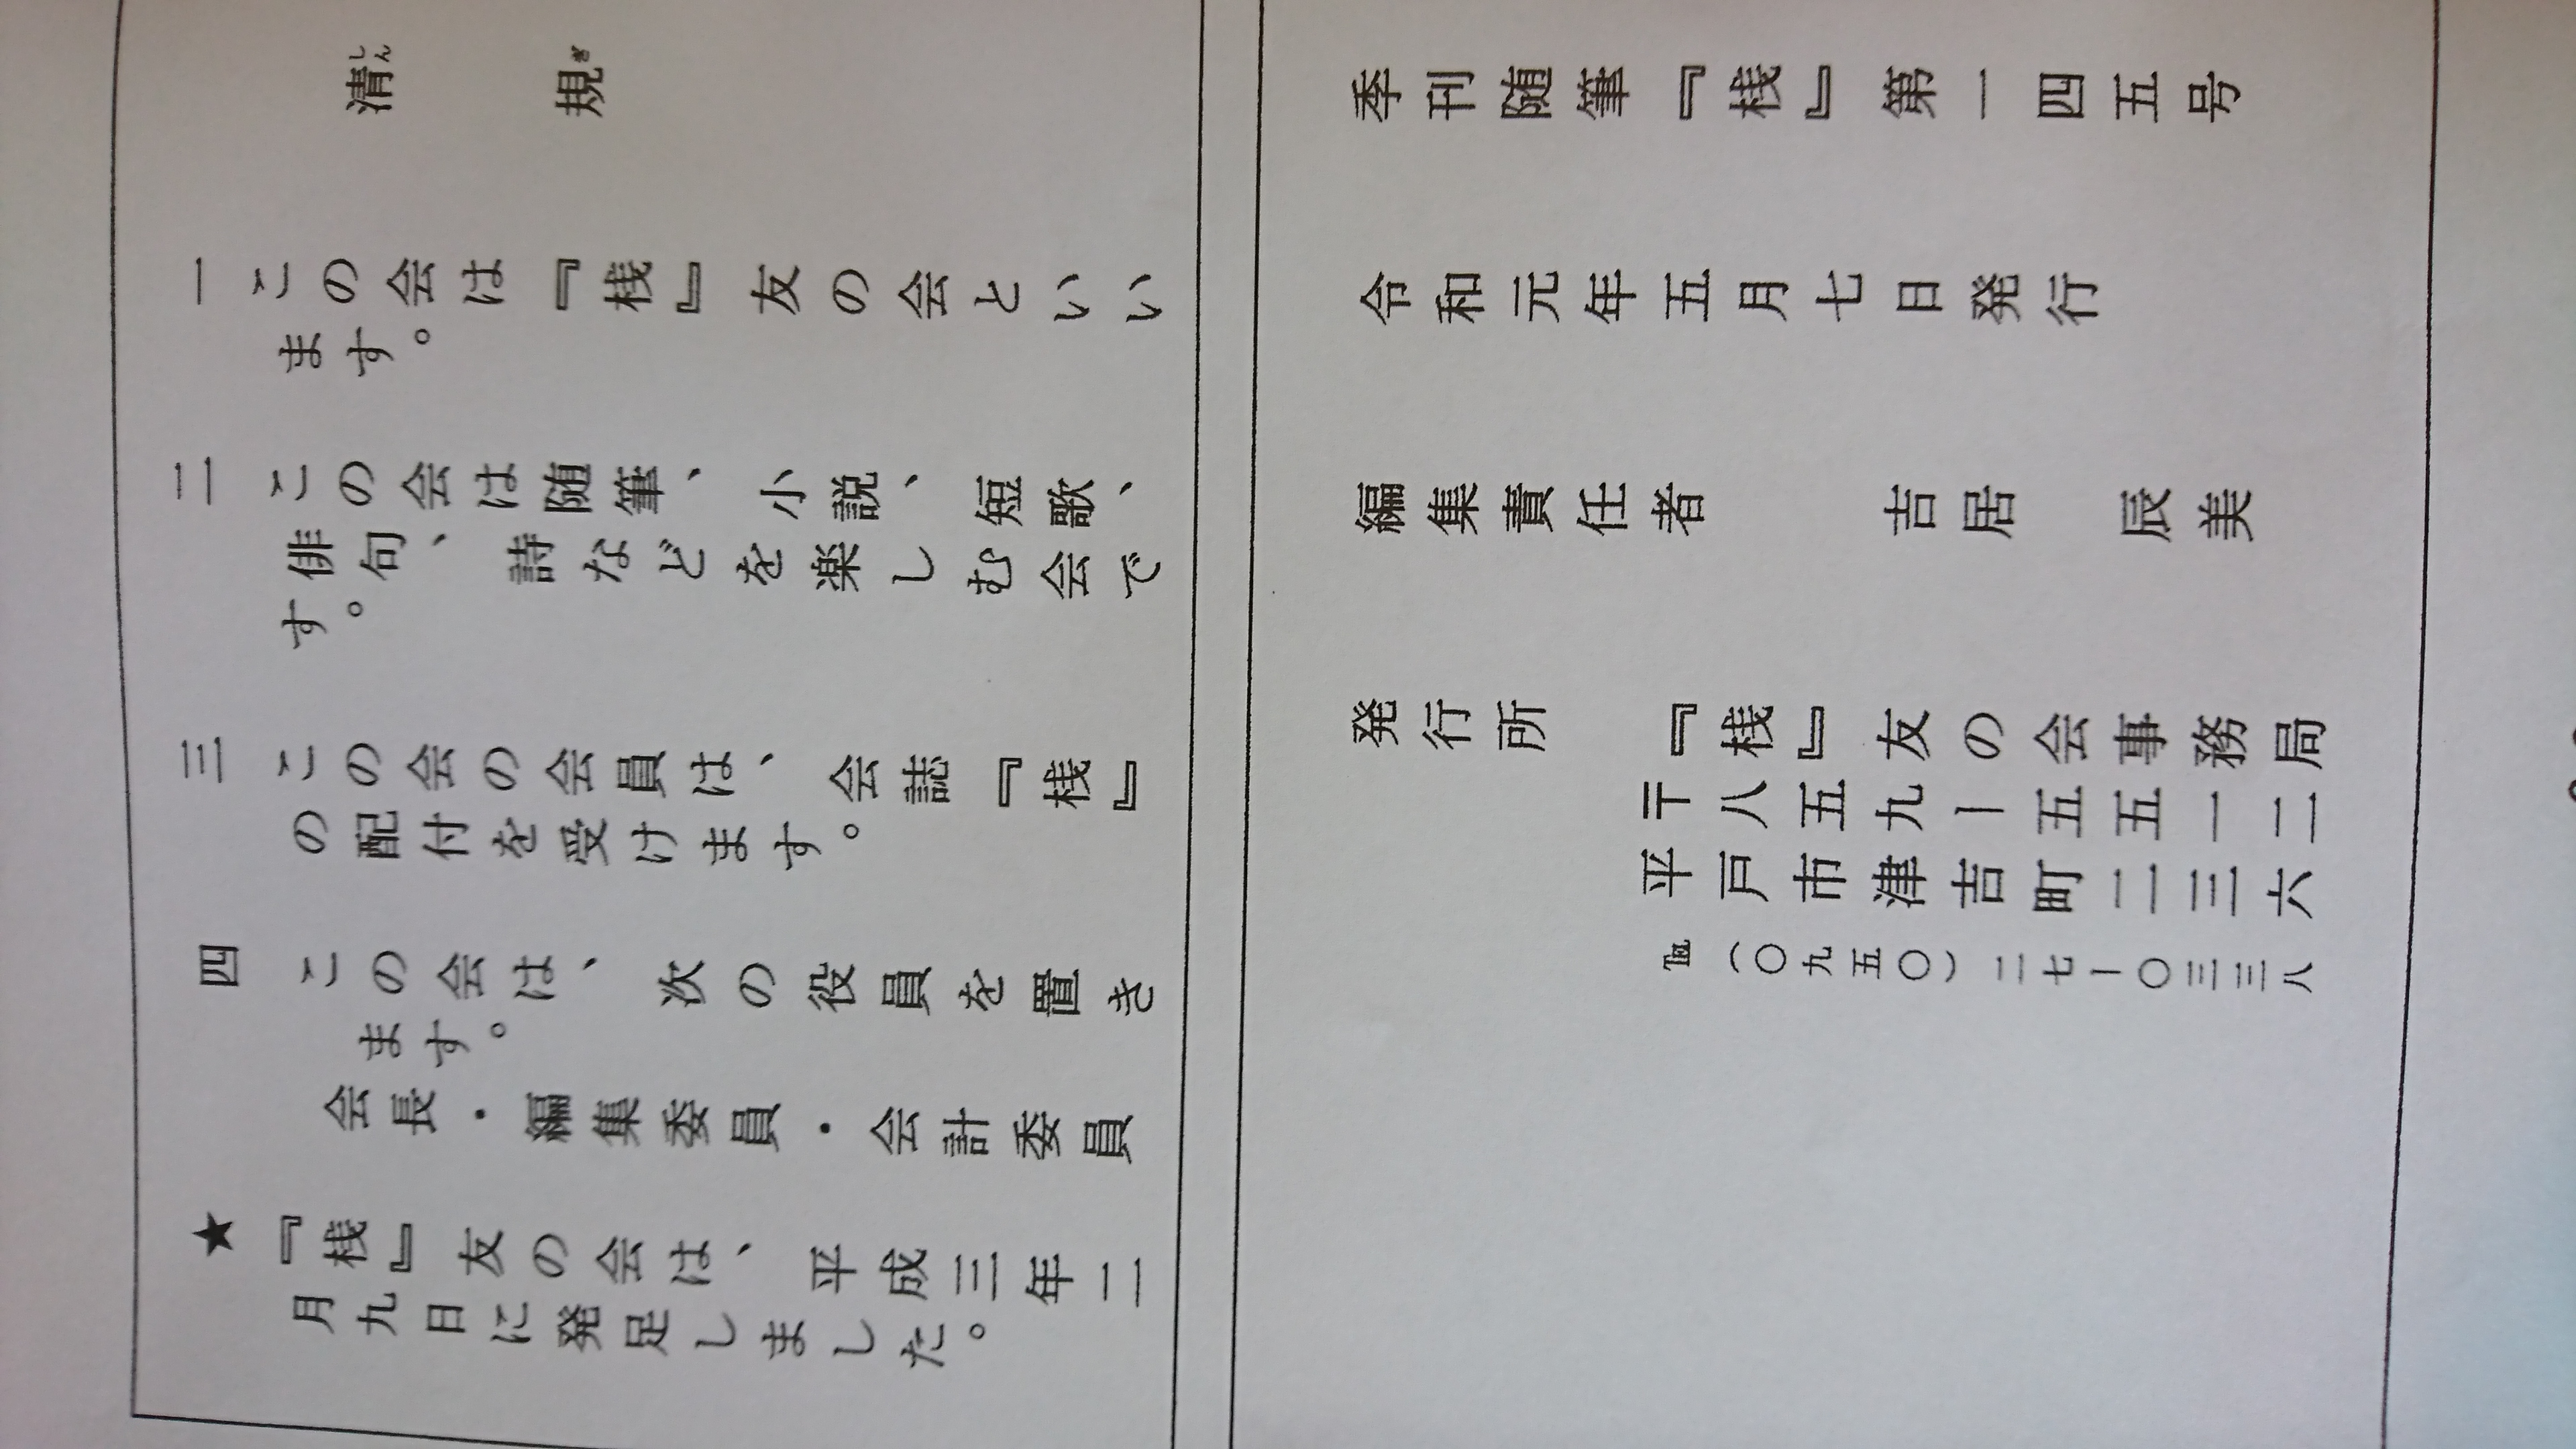 清規
しんぎ
一 この会は『桟』友の会といい
ます。
二 この会は随筆、小説、短歌、
俳句、詩などを楽しむ会で
す。
三 この会の会員は、会誌『桟』
の配付を受けます。
四 この会は、次の役員を置き
ます。
会長・編集委員・会計委員
★『桟』友の会は、平成三年二
月九日に発足しました。
季刊随筆『桟』第一四五号
令和元年五月七日発行
編集責任者 吉居 辰美
発行所 『桟』友の会事務局
〒八五九ー五五一二
平戸市津吉町二三六
℡(〇九五〇)二七ー〇三三八